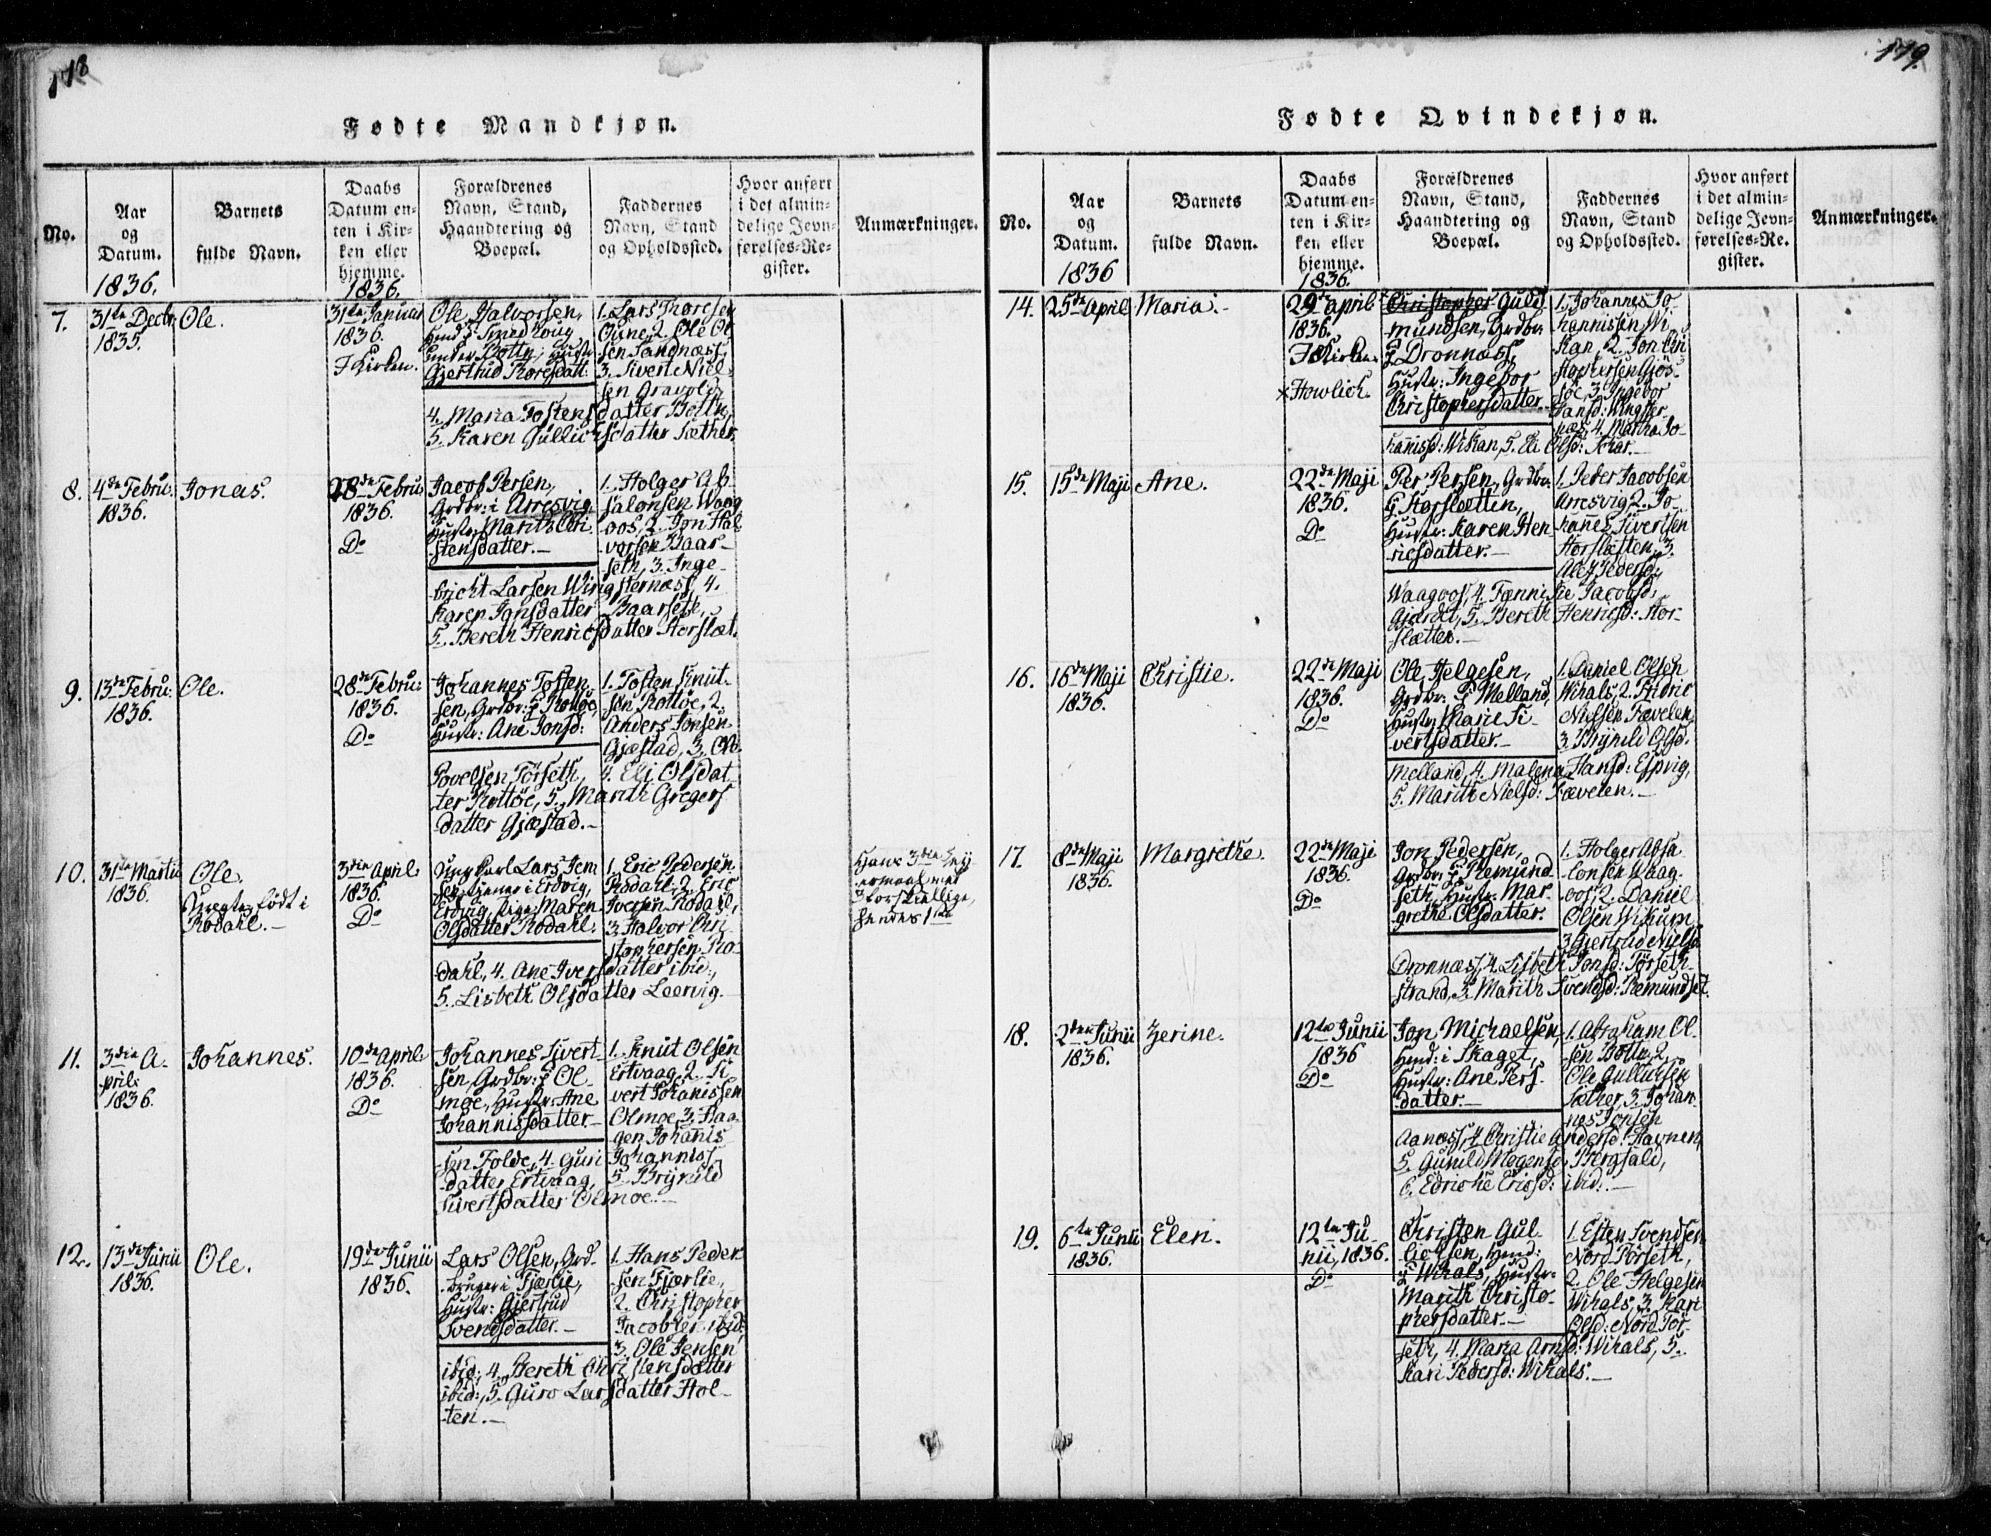 178
Fødte Mandkjøn.
No.
Aar
og
Datum.
1836.
Barnets
fulde Navn.
Daabs
Datum en-
ten i Kir-
ken eller
hjemme.
1836.
Forældrenes
Navn, Stand,
Haandtering og
Boepæl.
Faddernes
Navn, Stand
og Opholdssted.
Hvor anført
i det almin-
delige Jevn-
førelses-Re-
gister.
Anmærkninger.
7.
31te Decbr
1835.
Ole.
31te Januar
1836.
I Kirken.
Ole Halvorsen,
under Botten, Hustr:
Gjertrud Toresdatt:
1. Lars Thoresen
2. Ole Ol-
sen Sandnæss,
3. Sivert Niel-
sen
4. Maria Tostensdatter Botten,
5. Karen Gullichsdatter Sæther.
8.
4de Febru:
1836.
Jonas.
28de Febru:
1836.
Do
Jacob Persen,
Grdbr: i Arresvig,
Hustr: Marith Chri-
stensdatter.—
1. Holger Ab-
salonsen Waag-
oos, 2. Jon Hal-
vorsen Baar-
seth, 3. Inge-
bricht Larsen Wingsternæss, 4.
Karen Jonsdatter Baarseth,
5. Bereth Henricsdatter Storslæt.
9.
13de Febru:
1836.
Ole.
28de Febru:
1836.
Do
Johannes Tosten-
sen, Grdbr: p Rottøe,
Hustr: Ane Jonsd:
1. Tosten Knut-
sen Rottøe, 2.
Anders Jonsen
Gjæstad, 3. Ole
Povelsen Tørseth, 4. Eli Olsdat-
ter Rottøe, 5. Marith Gregers-
datter Gjæstad.—
10.
31te Martii
1836.
Ole.
Uægte, født i
Rodahl.—
3die April
1836.
Do
Ungkarl Lars Jen-
sen, tjener i Ertvig,
Ertvig, Pige Maren
Olsdatter Rodahl.
1. Eric Pedersen
Rodahl, 2. Eric
Iversen Rodahl,
3. Halvor Chri-
stophersen Ro-
dahl, 4. Ane Iversdatter ibid:,
5. Lisbeth Olsdatter Leervig.—
Hans 3die Leij-
ermaal med
3 forskiellige,
hendes 1ste
11.
3die A-
pril
1836.
Johannes.
10de April
1836.
Do
Johannes Sivert-
sen, Grdbr: p Ol-
møe, Hustr: Ane
Johannisdatter.—
1. Knut Olsen
Ertvaag, 2. Si-
vert Johanissen
Olmøe, 3. Haa-
gen Johanis-
sen Folde, 4. Guri Johannis-
datter Ertvaag, 5. Brynild
Sivertsdatter Olmøe.—
12.
13de Junii
1836.
Ole.
19de Junii
1836.
Lars Olsen, Grd-
bruger i Fjærlie,
Hustr: Gjertrud
Svendsdatter.—
1. Hans Peder-
sen Fjærlie,
2. Christopher
Jacobsen ibid:
3. Ole Jensen
ibid:, 4. Bereth Christensdatter
ibid:, 5. Guro Larsdatter Hol-
ten.—
179.
Fødte Qvindekjøn.
No.
Aar
og
Datum.
1836
Barnets
fulde Navn.
Daabs
Datum en-
ten i Kir-
ken eller
hjemme.
1836.
Forældrenes
Navn, Stand,
Haandtering og
Boepæl.
Faddernes
Navn, Stand
og Opholdssted.
Hvor anført
i det almin-
delige Jevn-
førelses-Re-
gister.
Anmærkninger.
14.
25de April
Maria.
29de april
1836.
I Kirken.
Christopher Gud-
mundsen, Grdbr:
p Dronnæss,
Hustr: Ingebor
Christophersdatter.—
1. Johannes Jo-
hannissen Wi-
kan, 2. Jon Chri-
stophersen
3. Ingebor
Hansd: Wingster-
næs, 4. Maria Jo-
hannisd: Wikan, 5. Eli Olsd: Skar.—
15.
15de Maji
Ane.
22de Maji
1836.
Do
Per Persen, Grdbr:
p Storslætten,
Hustr: Karen Hen-
ricsdatter.—
1. Peder Jacobsen
Arresvig, 2. Jo-
hannes Sivertsen
Storslætten, 3.
Ales Pedersd:
Waagoos, 4. Fænnikie Jacobsd:
Gjerdet, 5. Bereth Henricsd: Stor-
slætten.—
16.
16de Maji
1836.
Christie.
22de Maji
1836.
Do
Ole Helgesen,
Grdbr: p Melland,
Hustr: Marie Si-
vertsdatter.—
1. Daniel Olsen
Wikals, 2. Fridric
Nielsen Fævelen,
3. Brynild Olsd:
Melland, 4. Malena Hansd: Espvig,
5. Marith Nielsd: Fævelen.—
17.
8de Maji
1836.
Margrethe.
22de Maji
1836.
Do
Jon Pedersen,
Grdbr: p Remund-
seth, Hustr: Mar-
grethe Olsdatter.
1. Holger Absa-
lonsen Waag-
oos, 2. Daniel
Olsen Wikum,
3. Gjertrud Nielsd:
Dronnæss, 4. Lisbeth Jonsd: Tørseth-
strand, 5. Marith Svendsd: Remundset.
18.
2den Junii
1836.
Zerine.
12te Junii
1836
Do
Jon Michaelsen,
Hmd: i Skaget,
Hustr: Ane Pers-
datter.—
1. Abraham Ol-
sen Botten, 2.
Ole Gullichsen
Sæther, 3. Johan-
nes Jonsen
Aanæss, 4. Christie Andersd: Havnen,
5. Gunild Mogensd: Bergfald,
6. Edriche Ericsd: ibid:.—
19.
6te Junii
1836.
Elen.
12te Ju-
nii, 1836.
Do
Christen Gul-
lichsen, Hmd:
p Wikals, Hustr:
Marith Christo-
phersdatter.—
1. Esten Svendsen
Nord Tørseth,
2. Ole Helgesen
Wikals, 3. Kari
Olsd: Nord Tør-
seth, 4. Maria Arnsd: Wikals, 5.
Kari Pedersd: Wikals.—